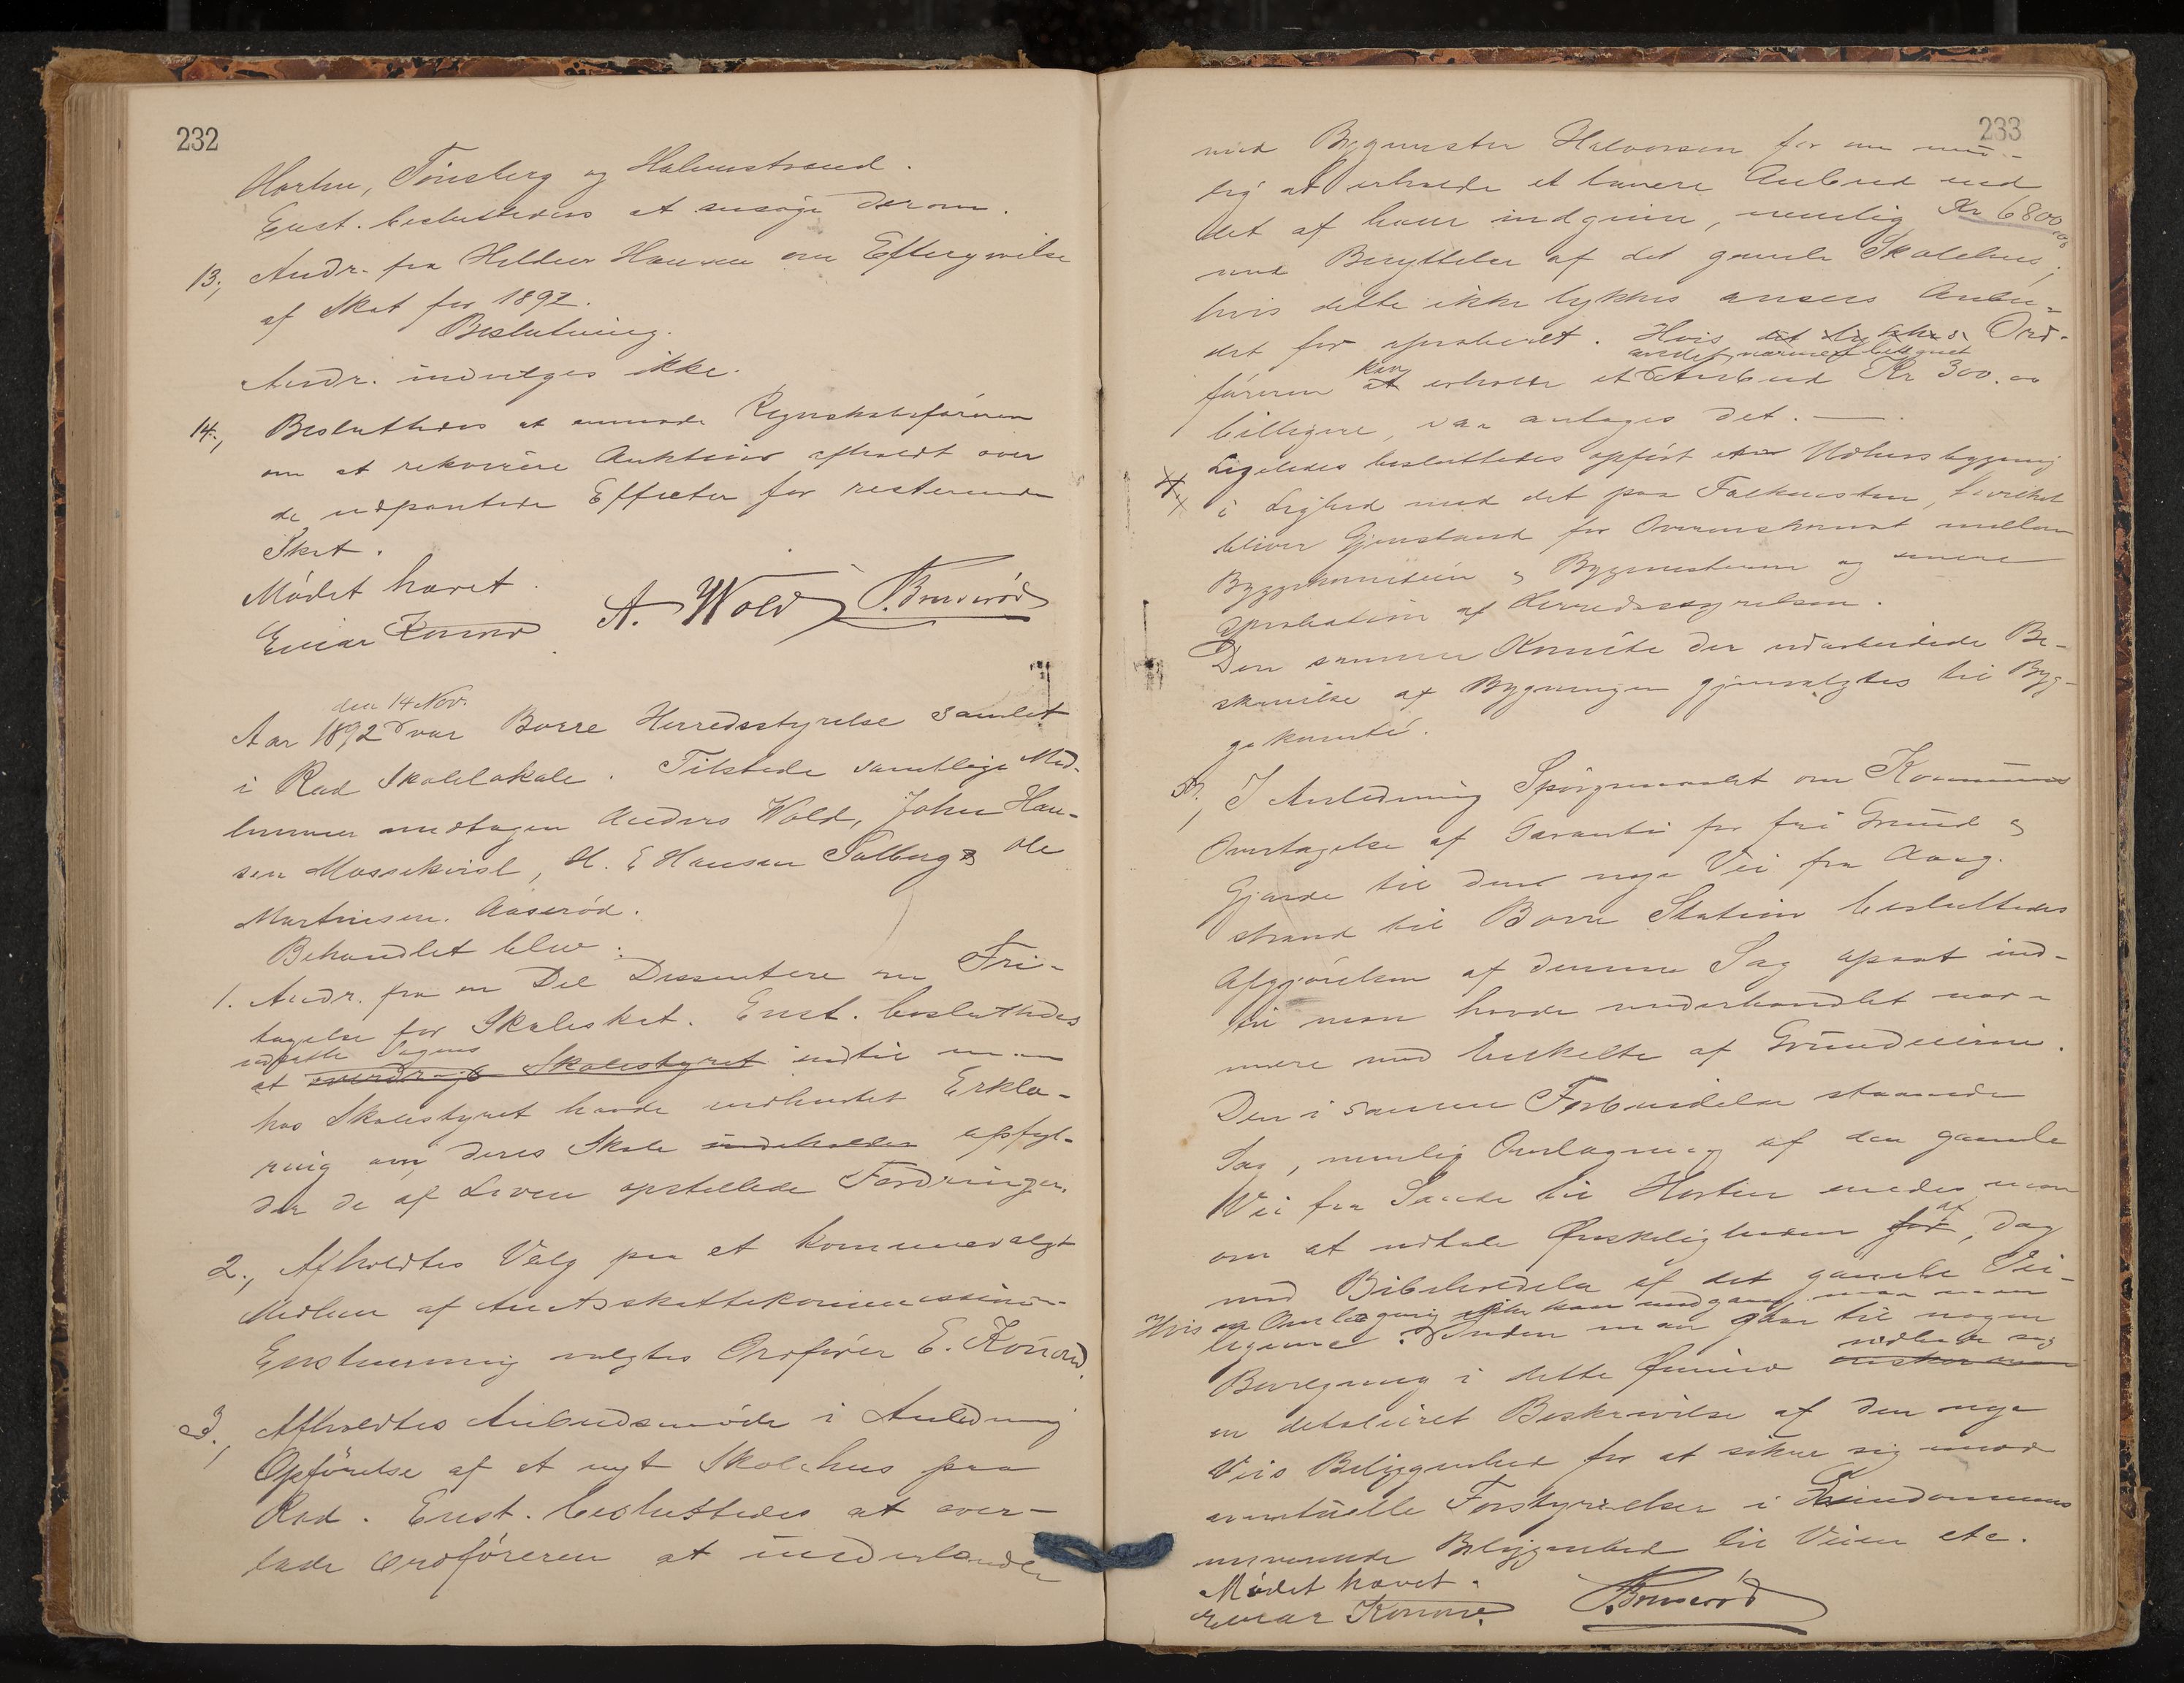 232
Horten, Tönsberg og Holmestrand.
Enst. besluttedes at ansøge derom.
13, Andr. fra Hansen om Eftergivelse
af Skat for 1892.
Beslutning.
Andr. indvilges ikke.
14, Besluttedes at anmode Regnskabsföreren
om at rekvirere Auktion afholdt over
de udpantede Effecter for resterende
Skat.
Mødet hævet.
Einar A. Wold
den 14 Nov.
Aar 1892 var Borre Herredsstyrelse samlet
i Rød Skolelokale. Tilstede samtlige Med-
lemmer undtagen Anders Wold, John Han-
sen Massekvist, H. E Hansen Solberg & Ole
Martinsen Aaserød.
Behandlet blev:
1. Andr. fra en Del Dissentere om Fri-
tagelse for Skoleskat. Enst. besluttedes
udsætte Sagens
at overdrage Skolestyret indtil man
hos Skolestyret havde indhentet Erklæ-
ring om deres Skole indeholder opfyl-
der de af Loven opstillede Fordringer.
2., Afholdtes Valg paa et kommunevalgt
Medlem af Amtsskattekommissionen.
Enstemmig valgtes Ordfører E.
3., Afholdtes Anbudsmöde i Anledning
Opförelse af et nyt Skolehus paa
Rød. Enst. besluttedes at over-
lade Ordföreren at underhandle
233
med Bygmester Halvorsen for om mu-
lig at erholde et lavere Anbud end
det af ham indgivne, nemlig Kr 6800,00
med Benyttelse af det gamle Skolehus;
hvis dette ikke lykkes ansees Anbu-
det for approberet. Hvis det lykkes Ord-
andet nærmest
kan
föreren at erholde et Anbud Kr 300.00
billigere, saa antages det.
Ligeledes besluttedes opfört en Udhusbygning
i Lighed med det paa Falkensten, hvilket
bliver Gjenstand for Overenskomst mellem
Byggekomiteen & Bygmesteren og senere
Aprobation af Herredsstyrelsen.
Den samme Komite der udarbeidede Be-
skrivelse af Bygningen gjenvalgtes til Byg-
gekomité.
I Anledning Spörgsmaalet om Kommunens
Overtagelse af Garanti for fri Grund &
Gjærde til den nye Vei fra Aasg.
strand til Borre Station besluttedes
Afgjörelsen af denne Sag opsat ind-
til man havde underhandlet nær-
mere med Enkelte af Grundeierne.
Den i samme Forbindelse staaende
Sag, nemlig Omlægning af den gamle
Vei fra Sande til Horten enedes man
af
om at udtale Ønskeligheden for, dog
med Bibeholdelse af det gamle Vei-
Hvis en Omlægning ikke kan undgaaes maa man
legeme. Inden man gaar til nogen
udbede sig
Bevægning i dette Øiemed ønsker man
en detaleiret Beskrivelse af den nye
Veis Beliggenhed for at sikre sig imod
eventuelle Forstyrrelser i Eiendommens
nuværende Beliggenhed til Veien etc.
Mödet hævet.
Einar